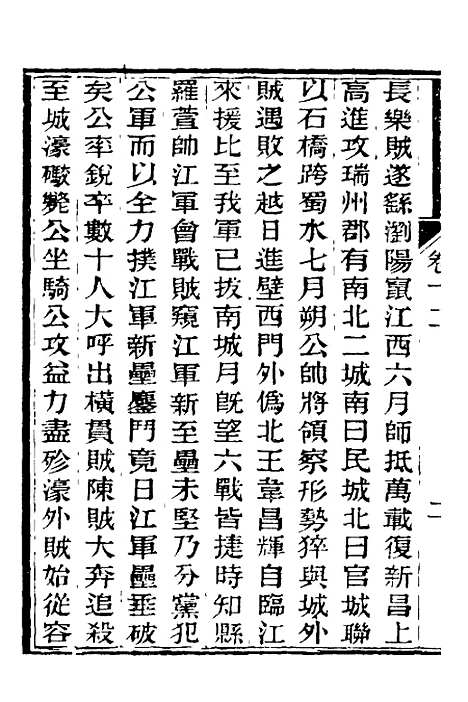 卷十二
長樂賊遂繇瀏陽竄江西六月師抵萬載復新昌上
高進攻瑞州郡有南北二城南曰民城北曰官城聯
以石橋跨蜀水七月朔公帥將領察形勢猝與城外
賊遇敗之越日進壁西門外僞北王韋昌輝自臨江
來援比至我軍已拔南城月旣望六戰皆捷時知縣
羅萱帥江軍會戰賊窺江軍新至壘未堅乃分黨犯
公軍而以全力撲江軍新壘鏖鬥竟日江軍壘垂破
矣公率銳卒數十人大呼出橫貫賊陳賊大奔追殺
至城濠礮斃公坐騎公攻益力盡殄濠外賊始從容